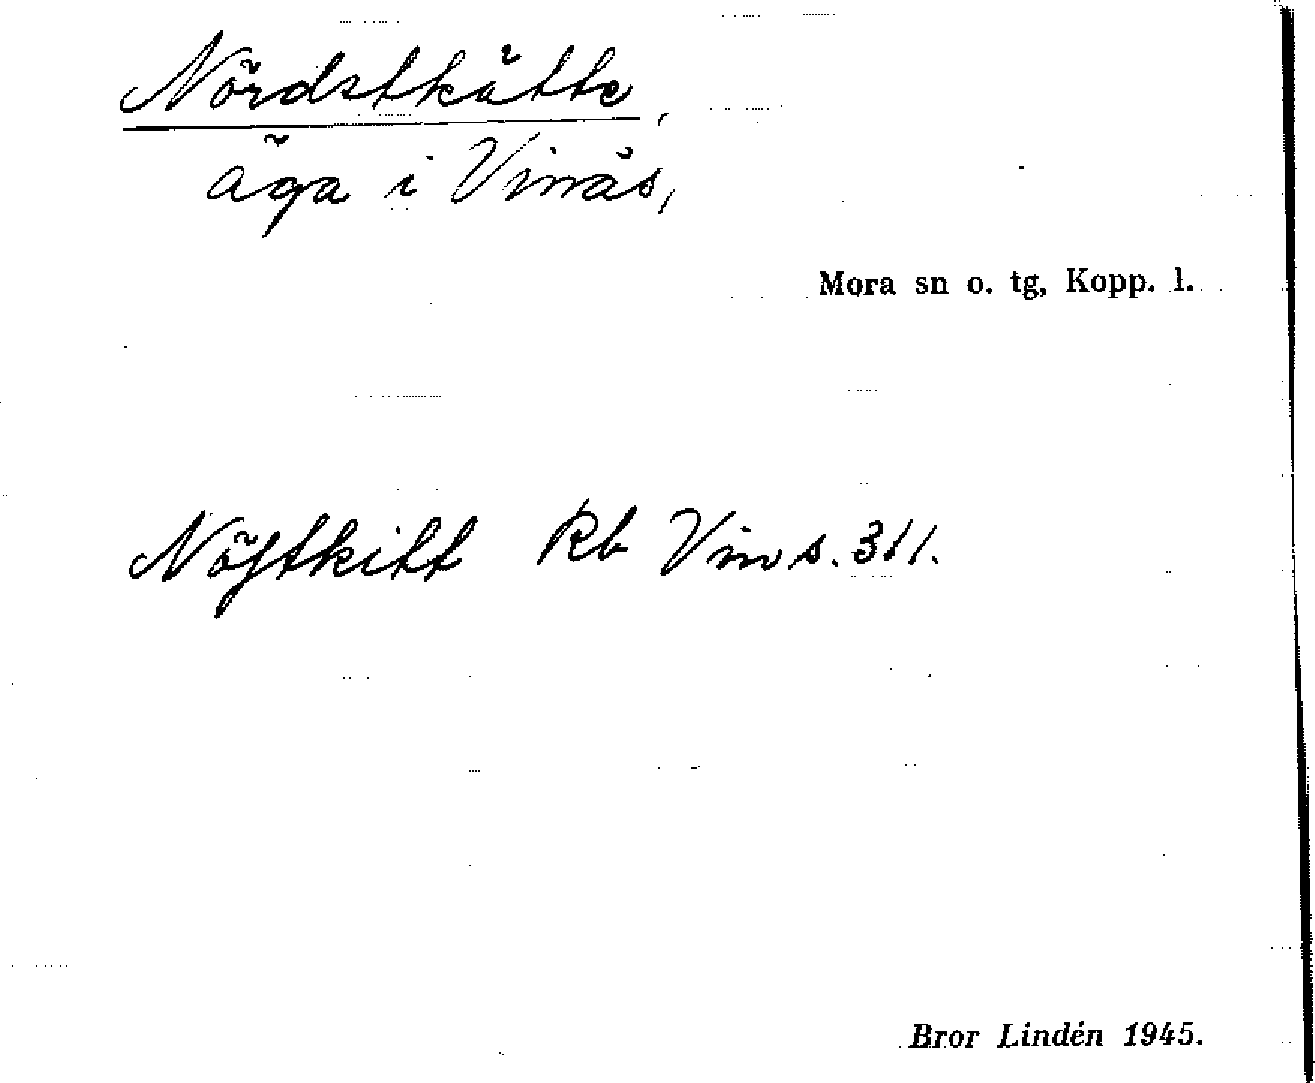 Nördstkätte,
äga i Vinäs,
Mora sn o. tg, Kopp. l.
Nöſtkitt Rb Vin s. 311.
Bror Lindén 1945.